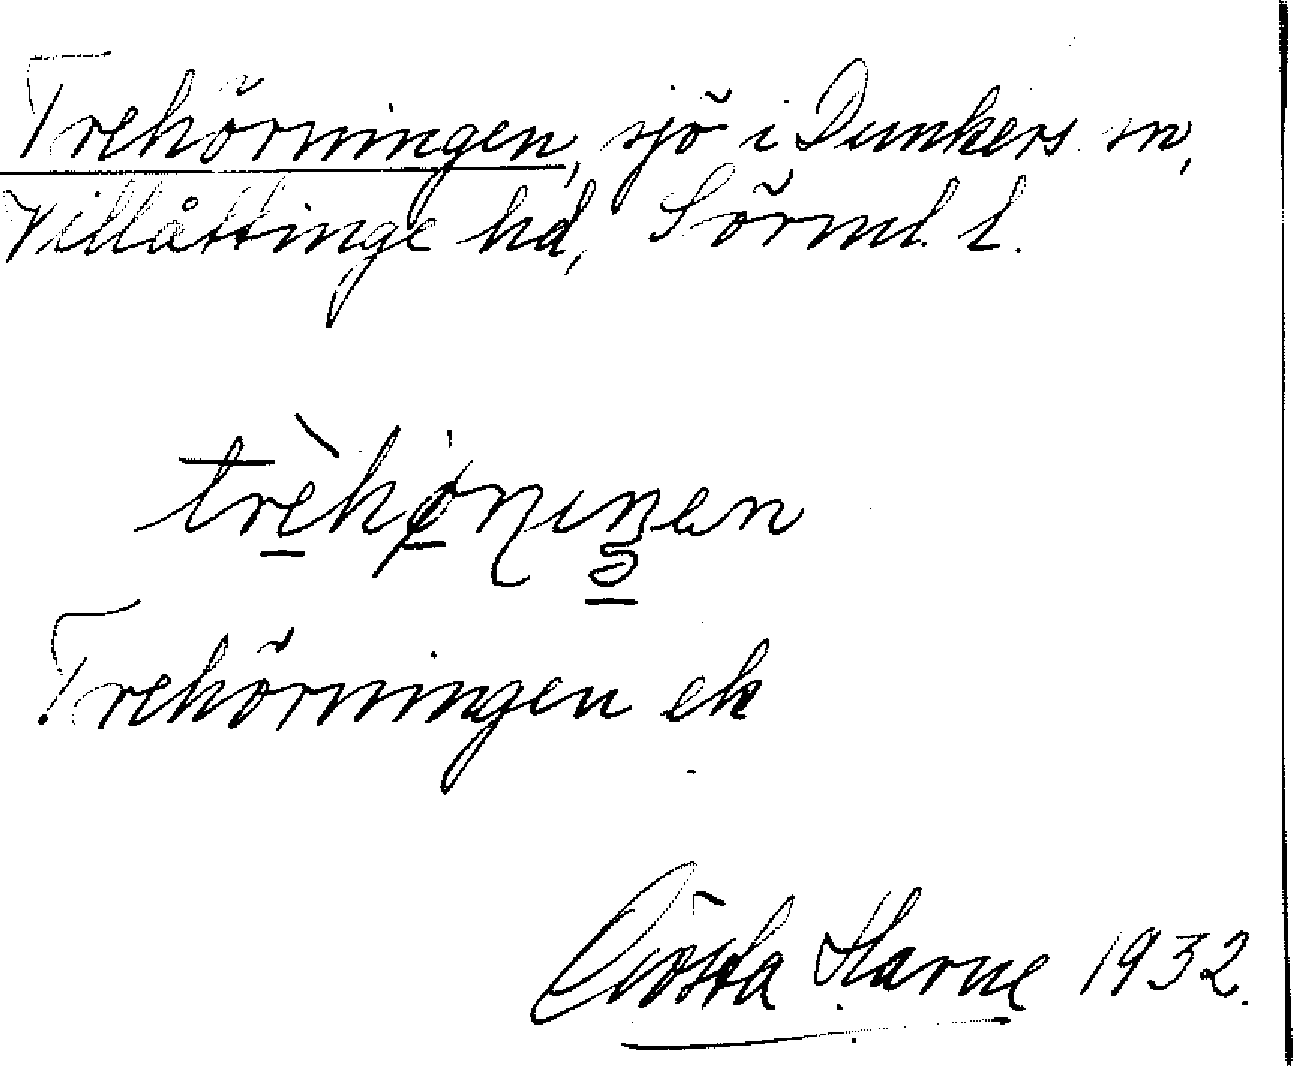 Trehörningen, sjö i Dunkers sn,
Villåttinge hd, Sörml. l.
Trehörningen ek
Gösta Harne 1932.